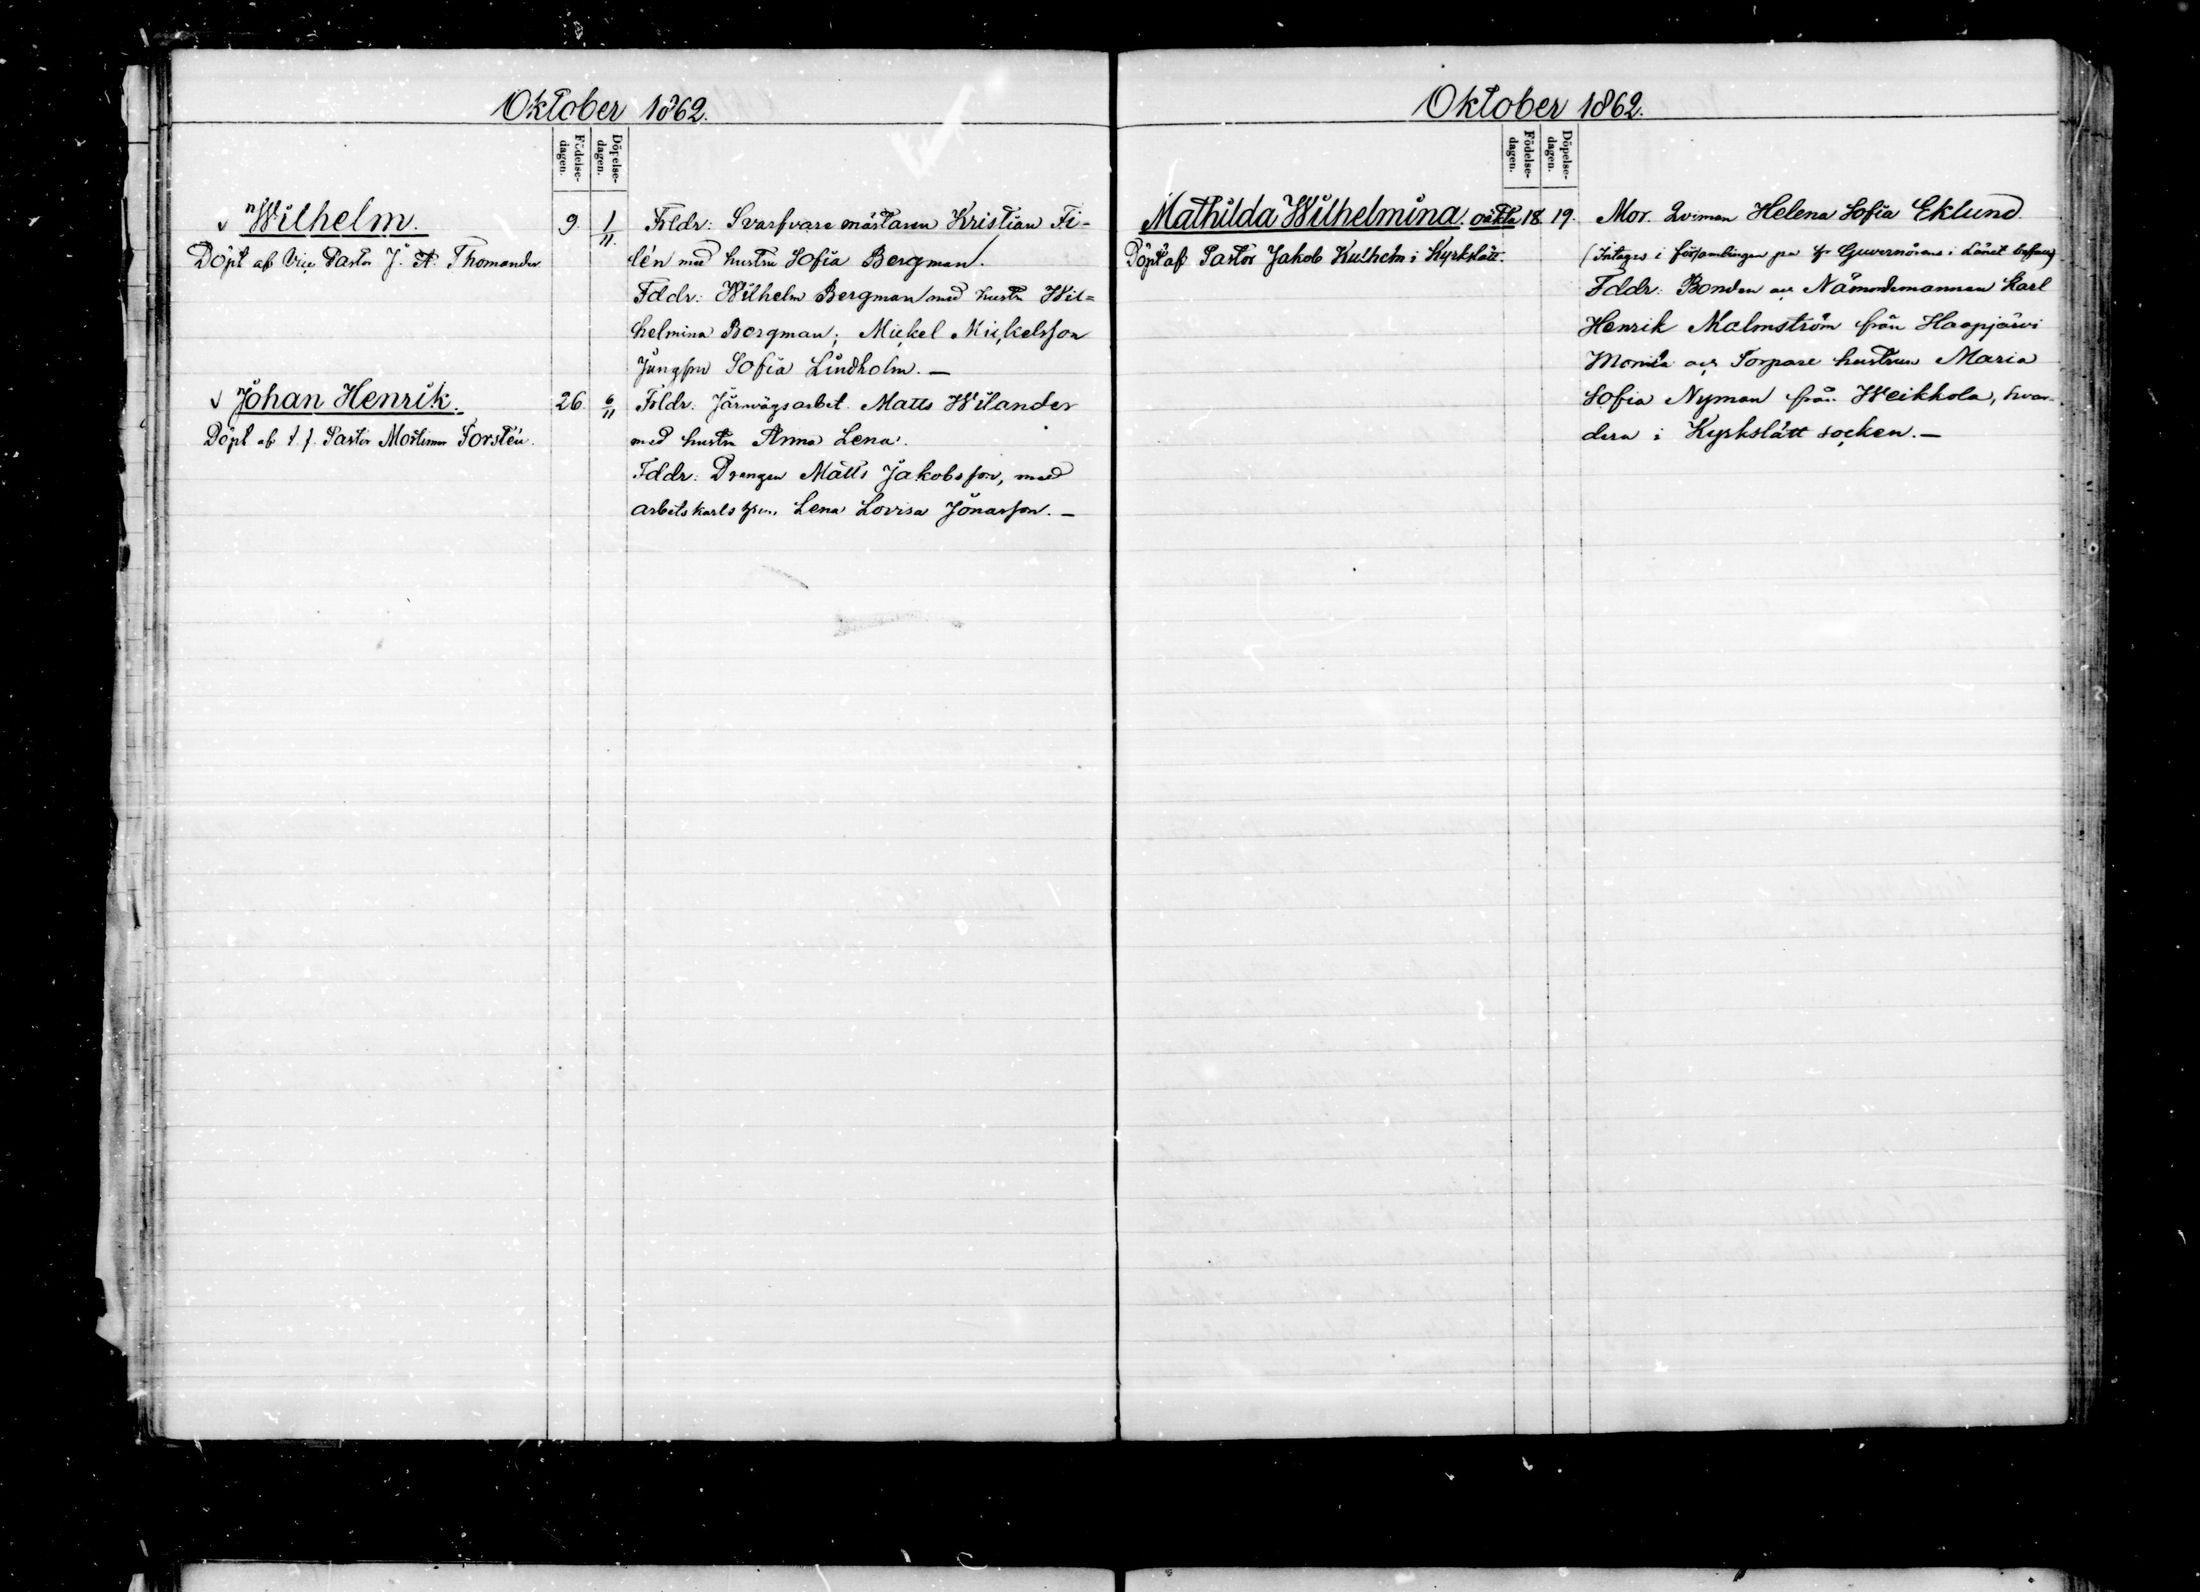 Oktober 1862.
Födelse-
dagen.
Döpelse-
dagen.
Wilhelm.
Döpt af Vice Pastor J. A. Thomander
9. 1/11. Frldr: Svarfvare mästaren Kristian Fi-
lén med hustru Sofia Bergman.
Fddr: Wilhelm Bergman med hustru Wil=
helmina Bergman; Mickel Mickelsson
Jungfru Sofia Lindholm. —
Johan Henrik.
Döpt af t. f. Pastor Mortimer Forstén.
26. 6/11 Frldr: Järnvägsarbet. Matts Wilander
med hustru Anna Lena.
Fddr: Drengen Matts Jakobsson, med
arbetskarls Lena Lovisa Jonasson. —
Oktober 1862.
Födelse-
dagen.
Döpelse-
dagen.
Mathilda Wilhelmina. oäkta 18. 19.
Döpt af Pastor Jakob Kulhelm i Kyrkslätt.
Mor. Qvinnan Helena Sofia Eklund.
(Intages i församlingen på Guvernörens i Länet befallng)
Fddr: Bonden och Nämndemannen Karl
Henrik Malmström från Haapjärvi
Monda och Torpare hustrun Maria
Sofia Nyman från Weikkola, hvar-
dera i Kyrkslätt socken. —